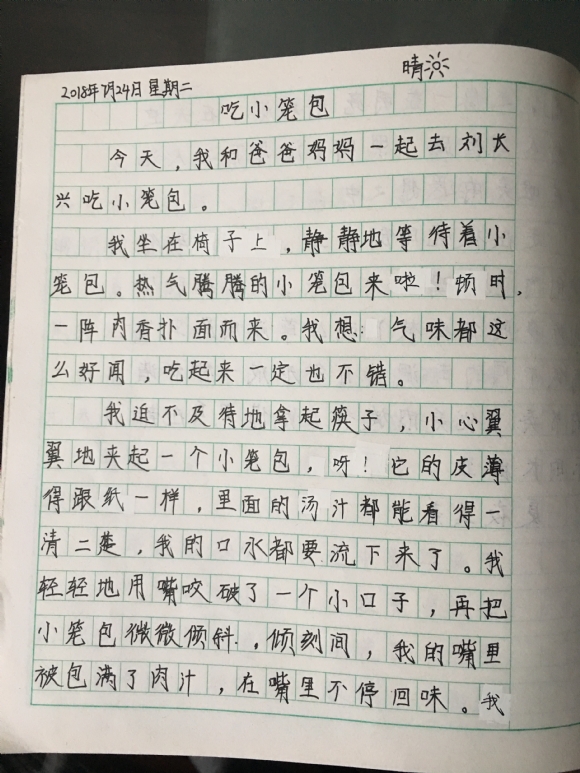 晴
2018年7月24日 星期二
吃小笼包
今天，我和爸爸妈妈一起去刘长
兴吃小笼包。
我坐在椅子上，静静地等待着小
笼包。热气腾腾的小笼包来啦！顿时，
一阵肉香扑面而来。我想：气味都这
么好闻，吃起来一定也不错。
我迫不及待地拿起筷子，小心翼
翼地夹起一个小笼包，呀！它的皮薄
得跟纸一样，里面的汤汁都能看得一
清二楚，我的口水都要流下来了。我
轻轻地用嘴咬破了一个小口子，再把
小笼包微微倾斜。倾刻间，我的嘴里
被包满了肉汁，在嘴里不停回味。我